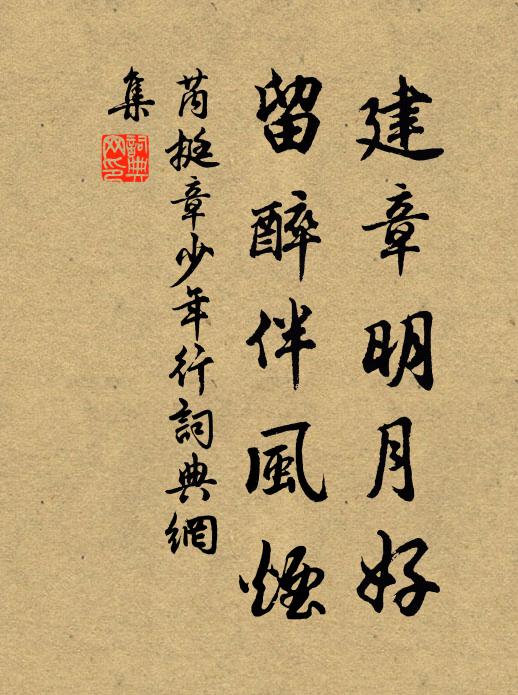 建章明月好
留醉伴風煙
芮挺章少年行詞典網
集
詞典網印